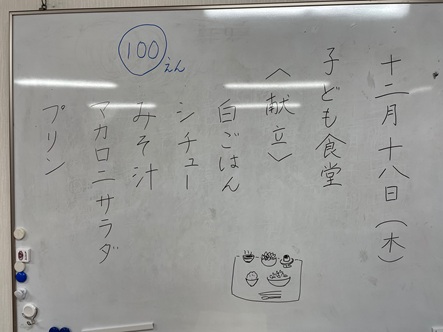 十二月十八日(木)
子ども食堂
〈献立〉
白ごはん
シチュー
みそ汁
マカロニサラダ
プリン
100えん